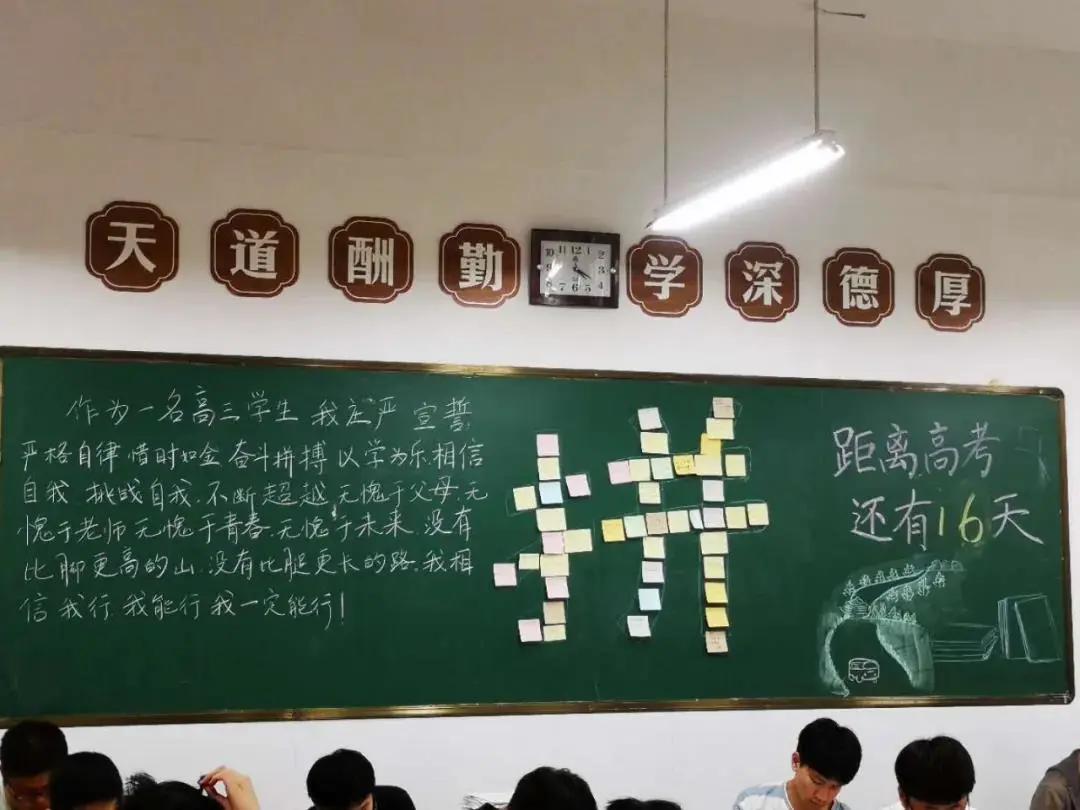 天道酬勤 学深德厚
作为一名高三学生 我庄严宣誓
严格自律 惜时如金 奋斗拼搏 以学为乐 相信
自我 挑战自我 不断超越 无愧于父母 无
愧于老师 无愧于青春 无愧于未来 没有
比脚更高的山 没有比腿更长的路 我相
信 我行 我能行 我一定能行！
拼
距离高考
还有16天